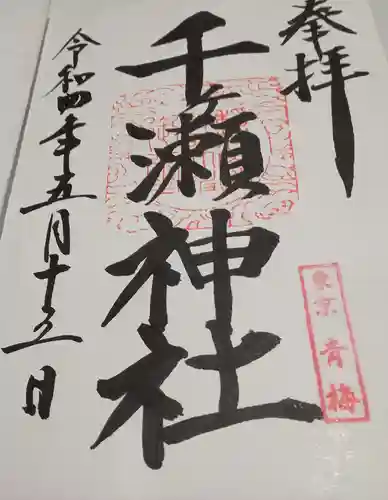 奉拝
千ヶ瀬神社
東京 青梅
令和四年五月十五日